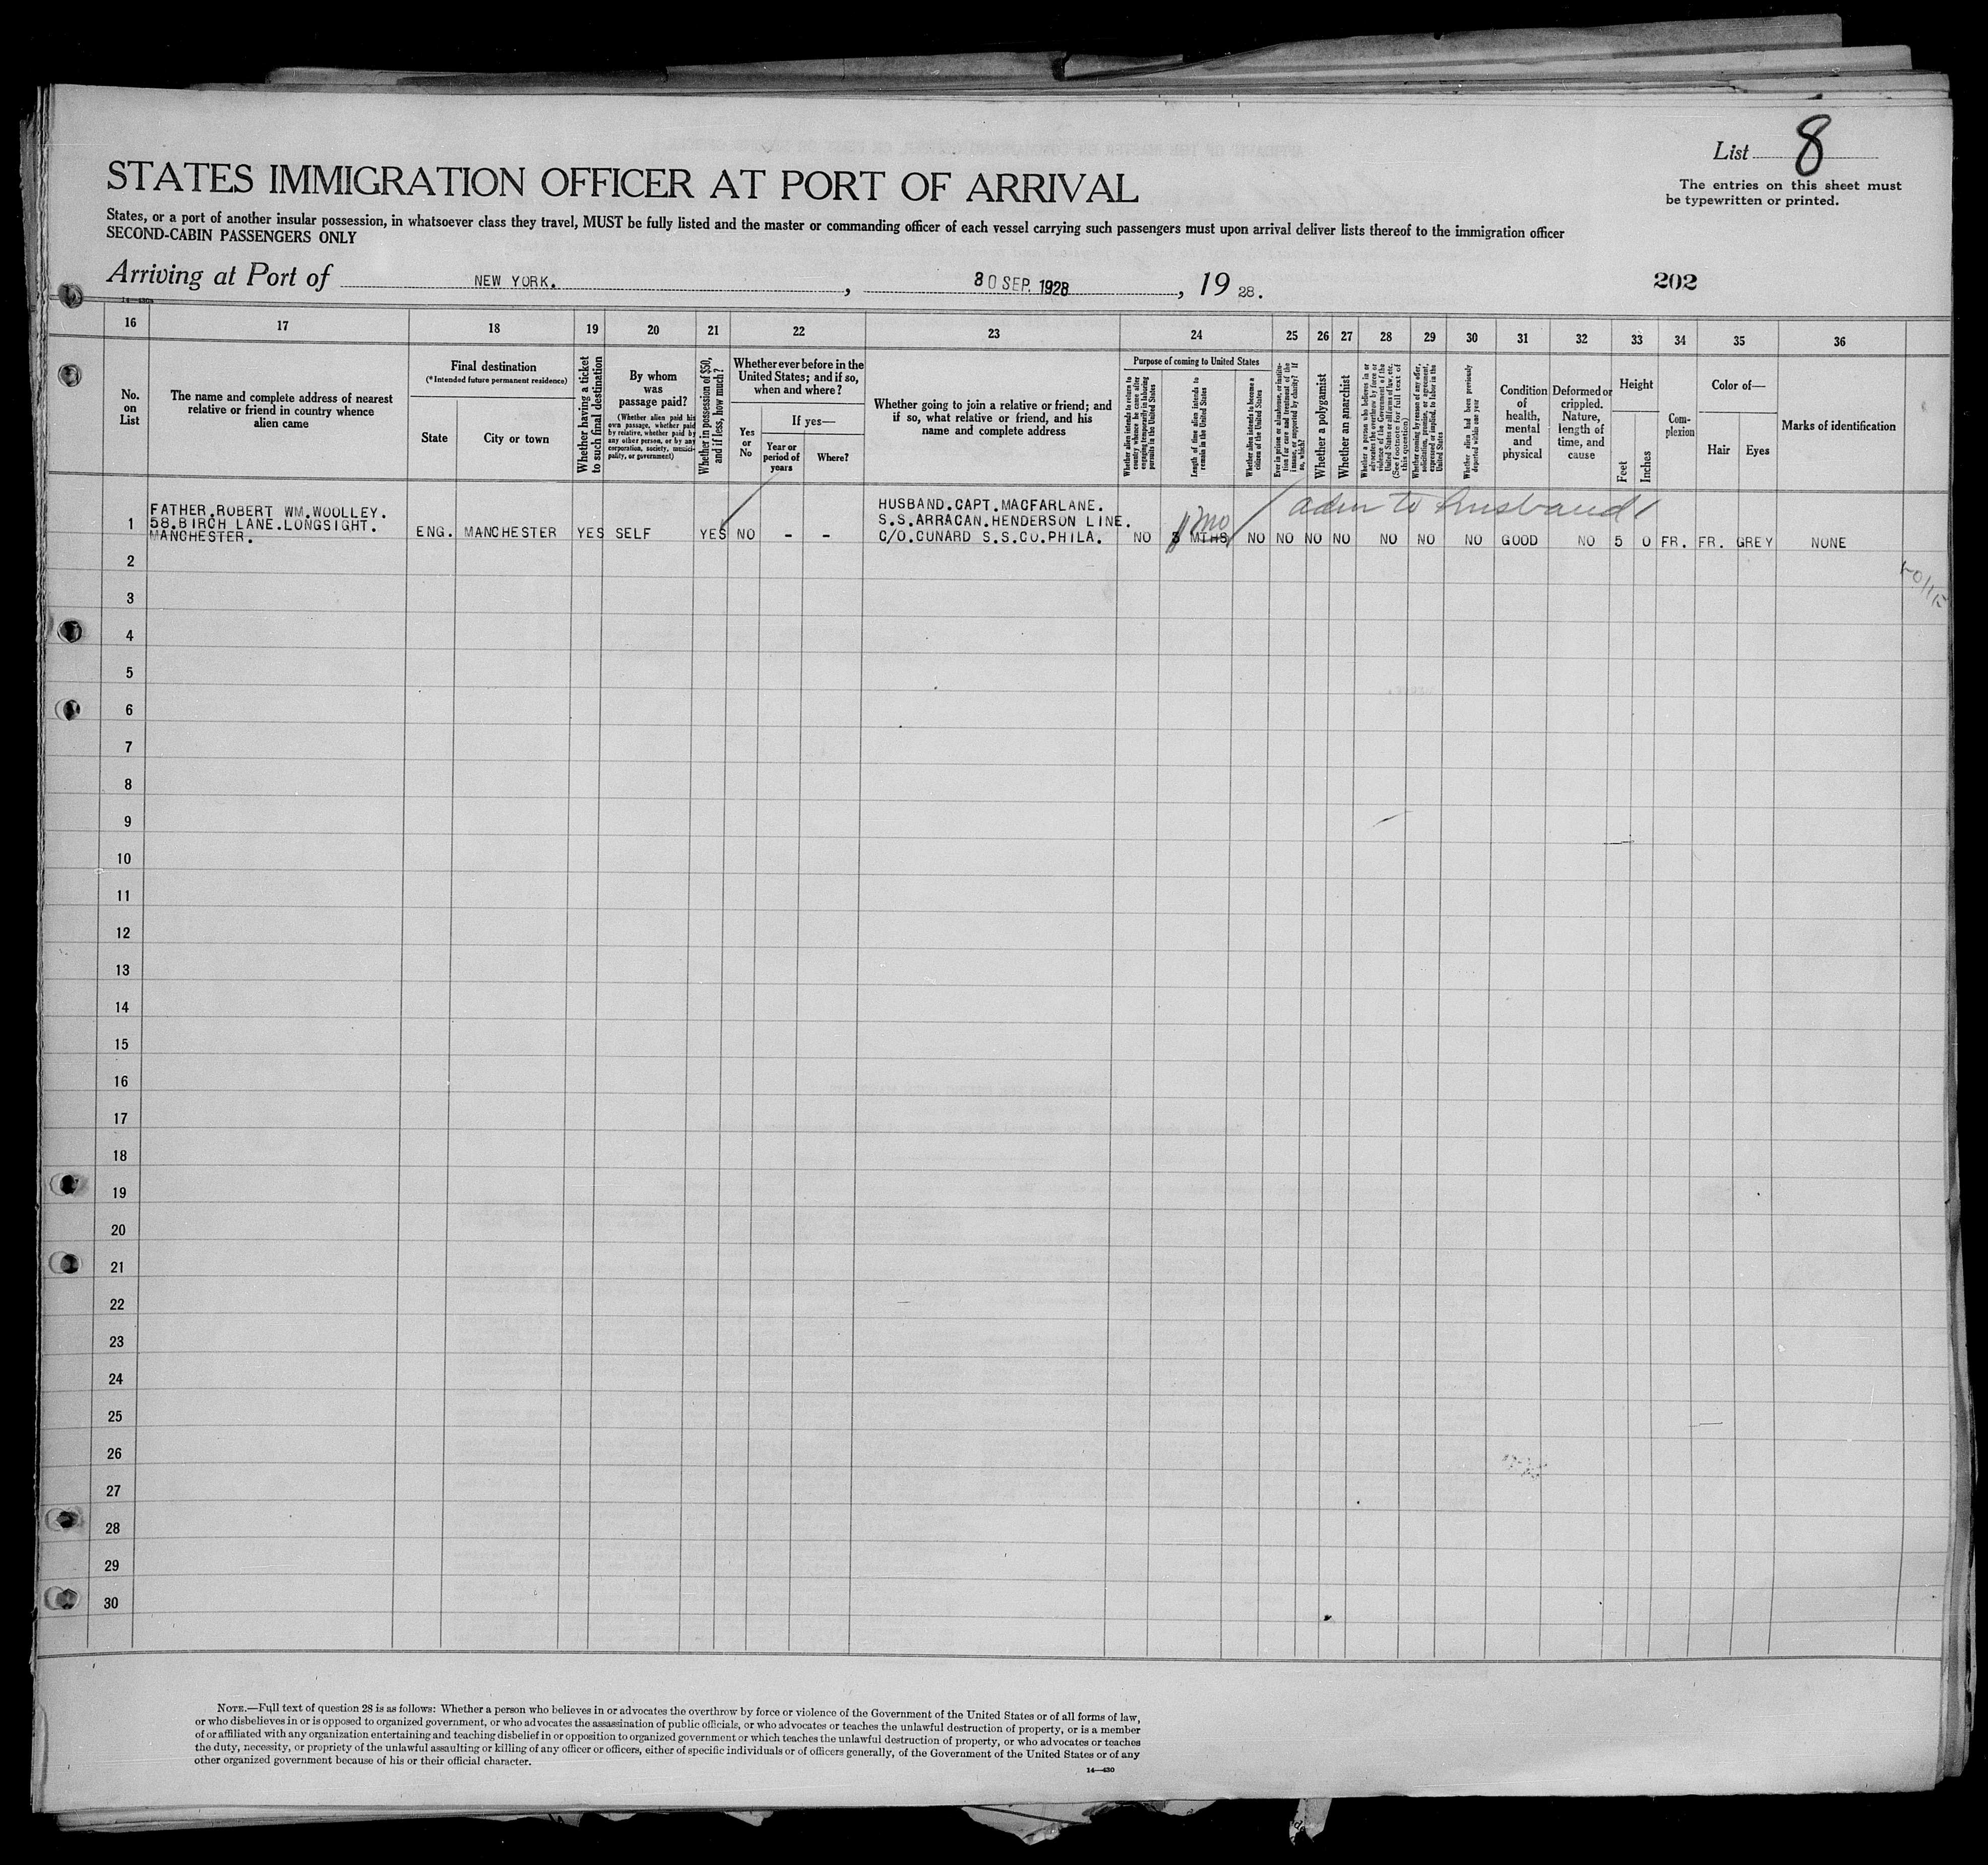 List 8
The entries on this sheet must
be typewritten or printed.
STATES IMMIGRATION OFFICER AT PORT OF ARRIVAL
States, or a port of another insular possession, in whatsoever class they travel, MUST be fully listed and the master or commanding officer of each vessel carrying such passengers must upon arrival deliver lists thereof to the immigration officer
SECOND-CABIN PASSENGERS ONLY
Arriving at Port of NEW YORK. , 30 SEP. 1928 , 19 28.
202
14—430a
16 17 18 19 20 21 22 23 24 25 26 27 28 29 30 31 32 33 34 35 36
No.
on
List
The name and complete address of nearest
relative or friend in country whence
alien came
Final destination
(*Intended future permanent residence)
State
City or town
Whether having a ticket
to such final destination
By whom
was
passage paid?
(Whether alien paid his
own passage, whether paid
by relative, whether paid by
any other person, or by any
corporation, society, munici-
pality, or government)
Whether in possession of $50,
and if less, how much?
Whether ever before in the
United States; and if so,
when and where?
Yes
or
No
If yes—
Year or
period of
years
Where?
Whether going to join a relative or friend; and
if so, what relative or friend, and his
name and complete address
Purpose of coming to United States
Whether alien intends to return to
country whence he came after
engaging temporarily in laboring
pursuits in the United States
Length of time alien intends to
remain in the United States
Whether alien intends to become a
citizen of the United States
Ever in prison or almshouse, or institu-
tion for care and treatment of the
insane, or supported by charity? If
so, which?
Whether a polygamist
Whether an anarchist
Whether a person who believes in or
advocates the overthrow by force or
violence of the Government of the
United States or all forms of law, etc.
(See footnote for full text of
this question)
Whether coming by reason of any offer,
solicitation, promise, or agreement,
expressed or implied, to labor in the
United States
Whether alien had been previously
deported within one year
Condition
of
health,
mental
and
physical
Deformed or
crippled.
Nature,
length of
time, and
cause
Height
Feet
Inches
Com-
plexion
Color of—
Hair
Eyes
Marks of identification
adm to husband
1 FATHER.ROBERT WM.WOOLLEY.
58.BIRCH LANE.LONGSIGHT.
MANCHESTER.
ENG. MANCHESTER YES SELF YES NO - -
HUSBAND.CAPT.MACFARLANE.
S.S.ARRACAN.HENDERSON LINE.
C/O.CUNARD S.S.CO.PHILA.
mo
NO 3 MTHS NO NO NO NO NO NO NO GOOD NO 5 0 FR. FR. GREY NONE
2
3
4
5
6
7
8
9
10
11
12
13
14
15
16
17
18
19
20
21
22
23
24
25
26
27
28
29
30
NOTE.—Full text of question 28 is as follows: Whether a person who believes in or advocates the overthrow by force or violence of the Government of the United States or of all forms of law,
or who disbelieves in or is opposed to organized government, or who advocates the assassination of public officials, or who advocates or teaches the unlawful destruction of property, or is a member
of or affiliated with any organization entertaining and teaching disbelief in or opposition to organized government or which teaches the unlawful destruction of property, or who advocates or teaches
the duty, necessity, or propriety of the unlawful assaulting or killing of any officer or officers, either of specific individuals or of officers generally, of the Government of the United States or of any
other organized government because of his or their official character.
14—430